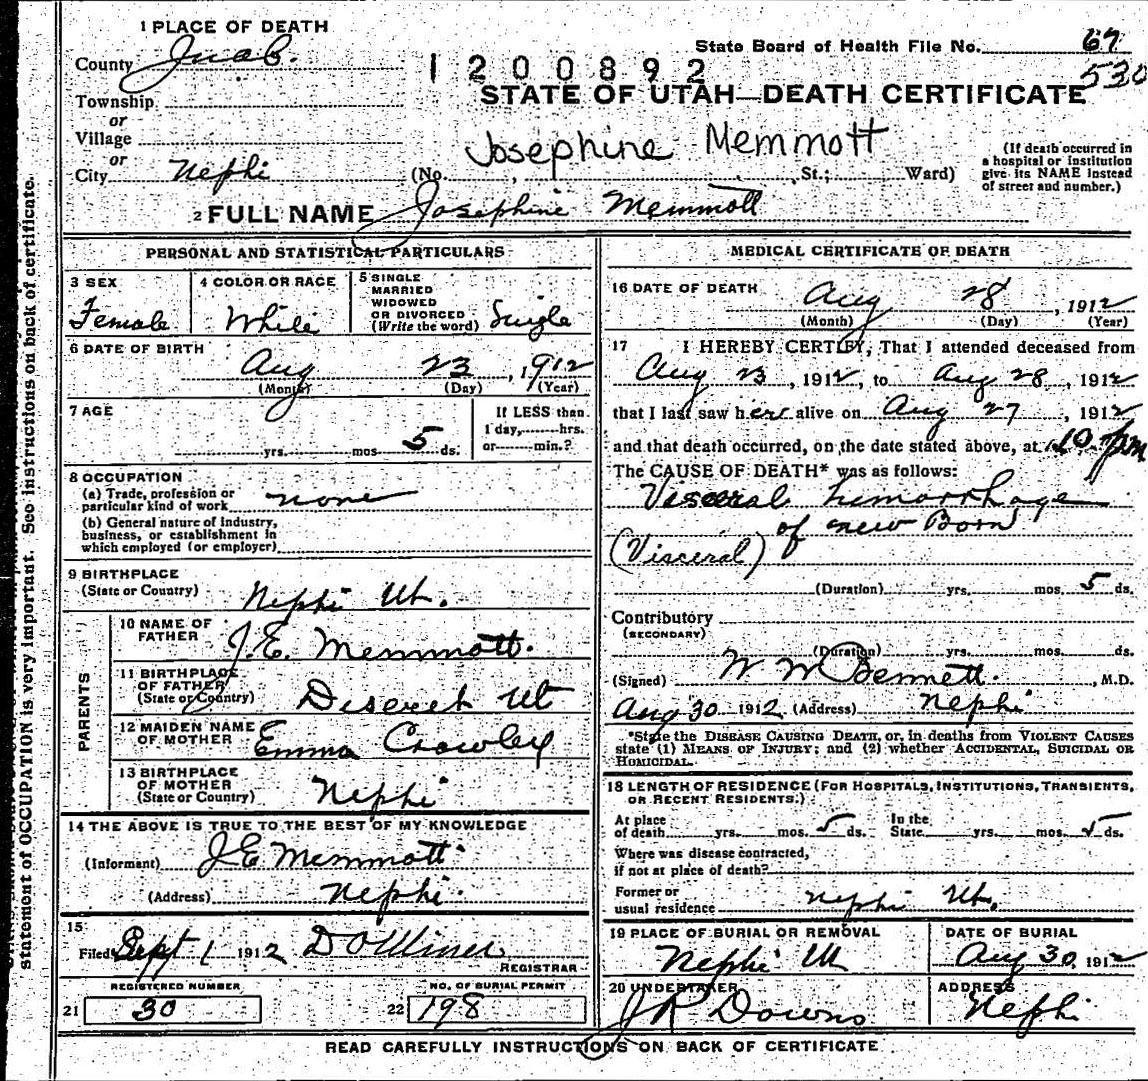 1 PLACE OF DEATH
County Juab.
State Board of Health File No. 67
530
1200892
STATE OF UTAH—DEATH CERTIFICATE
Township
or
Village
or
City Nephi
Josephine Memmott
(No. , St.; Ward)
(If death occurred in
a hospital or institution
give its NAME instead
of street and number.)
2 FULL NAME Josephine Memmott
PERSONAL AND STATISTICAL PARTICULARS
3 SEX
Female
4 COLOR OR RACE
White
5 SINGLE
MARRIED
WIDOWED
OR DIVORCED
(Write the word) Single
6 DATE OF BIRTH
Aug 23, 1912
(Month) (Day) (Year)
7 AGE
yrs. mos 5 ds.
If LESS than
1 day, hrs.
or min.?
8 OCCUPATION
(a) Trade, profession or
particular kind of work none
(b) General nature of industry,
business, or establishment in
which employed (or employer)
9 BIRTHPLACE
(State or Country) Nephi Ut.
PARENTS
10 NAME OF
FATHER J. E. Memmott.
11 BIRTHPLACE
OF FATHER
(State or Country) Deseret Ut
12 MAIDEN NAME
OF MOTHER Emma Crowley
13 BIRTHPLACE
OF MOTHER
(State or Country) Nephi
14 THE ABOVE IS TRUE TO THE BEST OF MY KNOWLEDGE
(Informant) J E Memmott
(Address) Nephi.
15
Filed Sept 1 1912 D O Miner
REGISTRAR
REGISTERED NUMBER
21 30
NO. OF BURIAL PERMIT
22 198
MEDICAL CERTIFICATE OF DEATH
16 DATE OF DEATH Aug 28, 1912
(Month) (Day) (Year)
17 I HEREBY CERTIFY, That I attended deceased from
Aug 23, 1912, to Aug 28, 1912
that I last saw her alive on Aug 27, 1912
and that death occurred, on the date stated above, at 10 pm
The CAUSE OF DEATH* was as follows:
Visceral hemorrhage
of new Born
(Visceral)
(Duration) yrs. mos. 5 ds.
Contributory
(SECONDARY)
(Duration) yrs. mos. ds.
(Signed) W M Bennett. , M.D.
Aug 30 1912 (Address) Nephi
*State the DISEASE CAUSING DEATH, or, in deaths from VIOLENT CAUSES
state (1) MEANS OF INJURY; and (2) whether ACCIDENTAL, SUICIDAL OR
HOMICIDAL.
18 LENGTH OF RESIDENCE (FOR HOSPITALS, INSTITUTIONS, TRANSIENTS,
OR RECENT RESIDENTS.)
At place
of death yrs. mos. 5 ds.
In the
State yrs. mos 5 ds.
Where was disease contracted,
if not at place of death?
Former or
usual residence nephi Ut.
19 PLACE OF BURIAL OR REMOVAL
Nephi Ut
DATE OF BURIAL
Aug 30, 1912
20 UNDERTAKER
J R Downs
ADDRESS
Nephi
READ CAREFULLY INSTRUCTIONS ON BACK OF CERTIFICATE
statement of OCCUPATION is very important. See instructions on back of certificate.